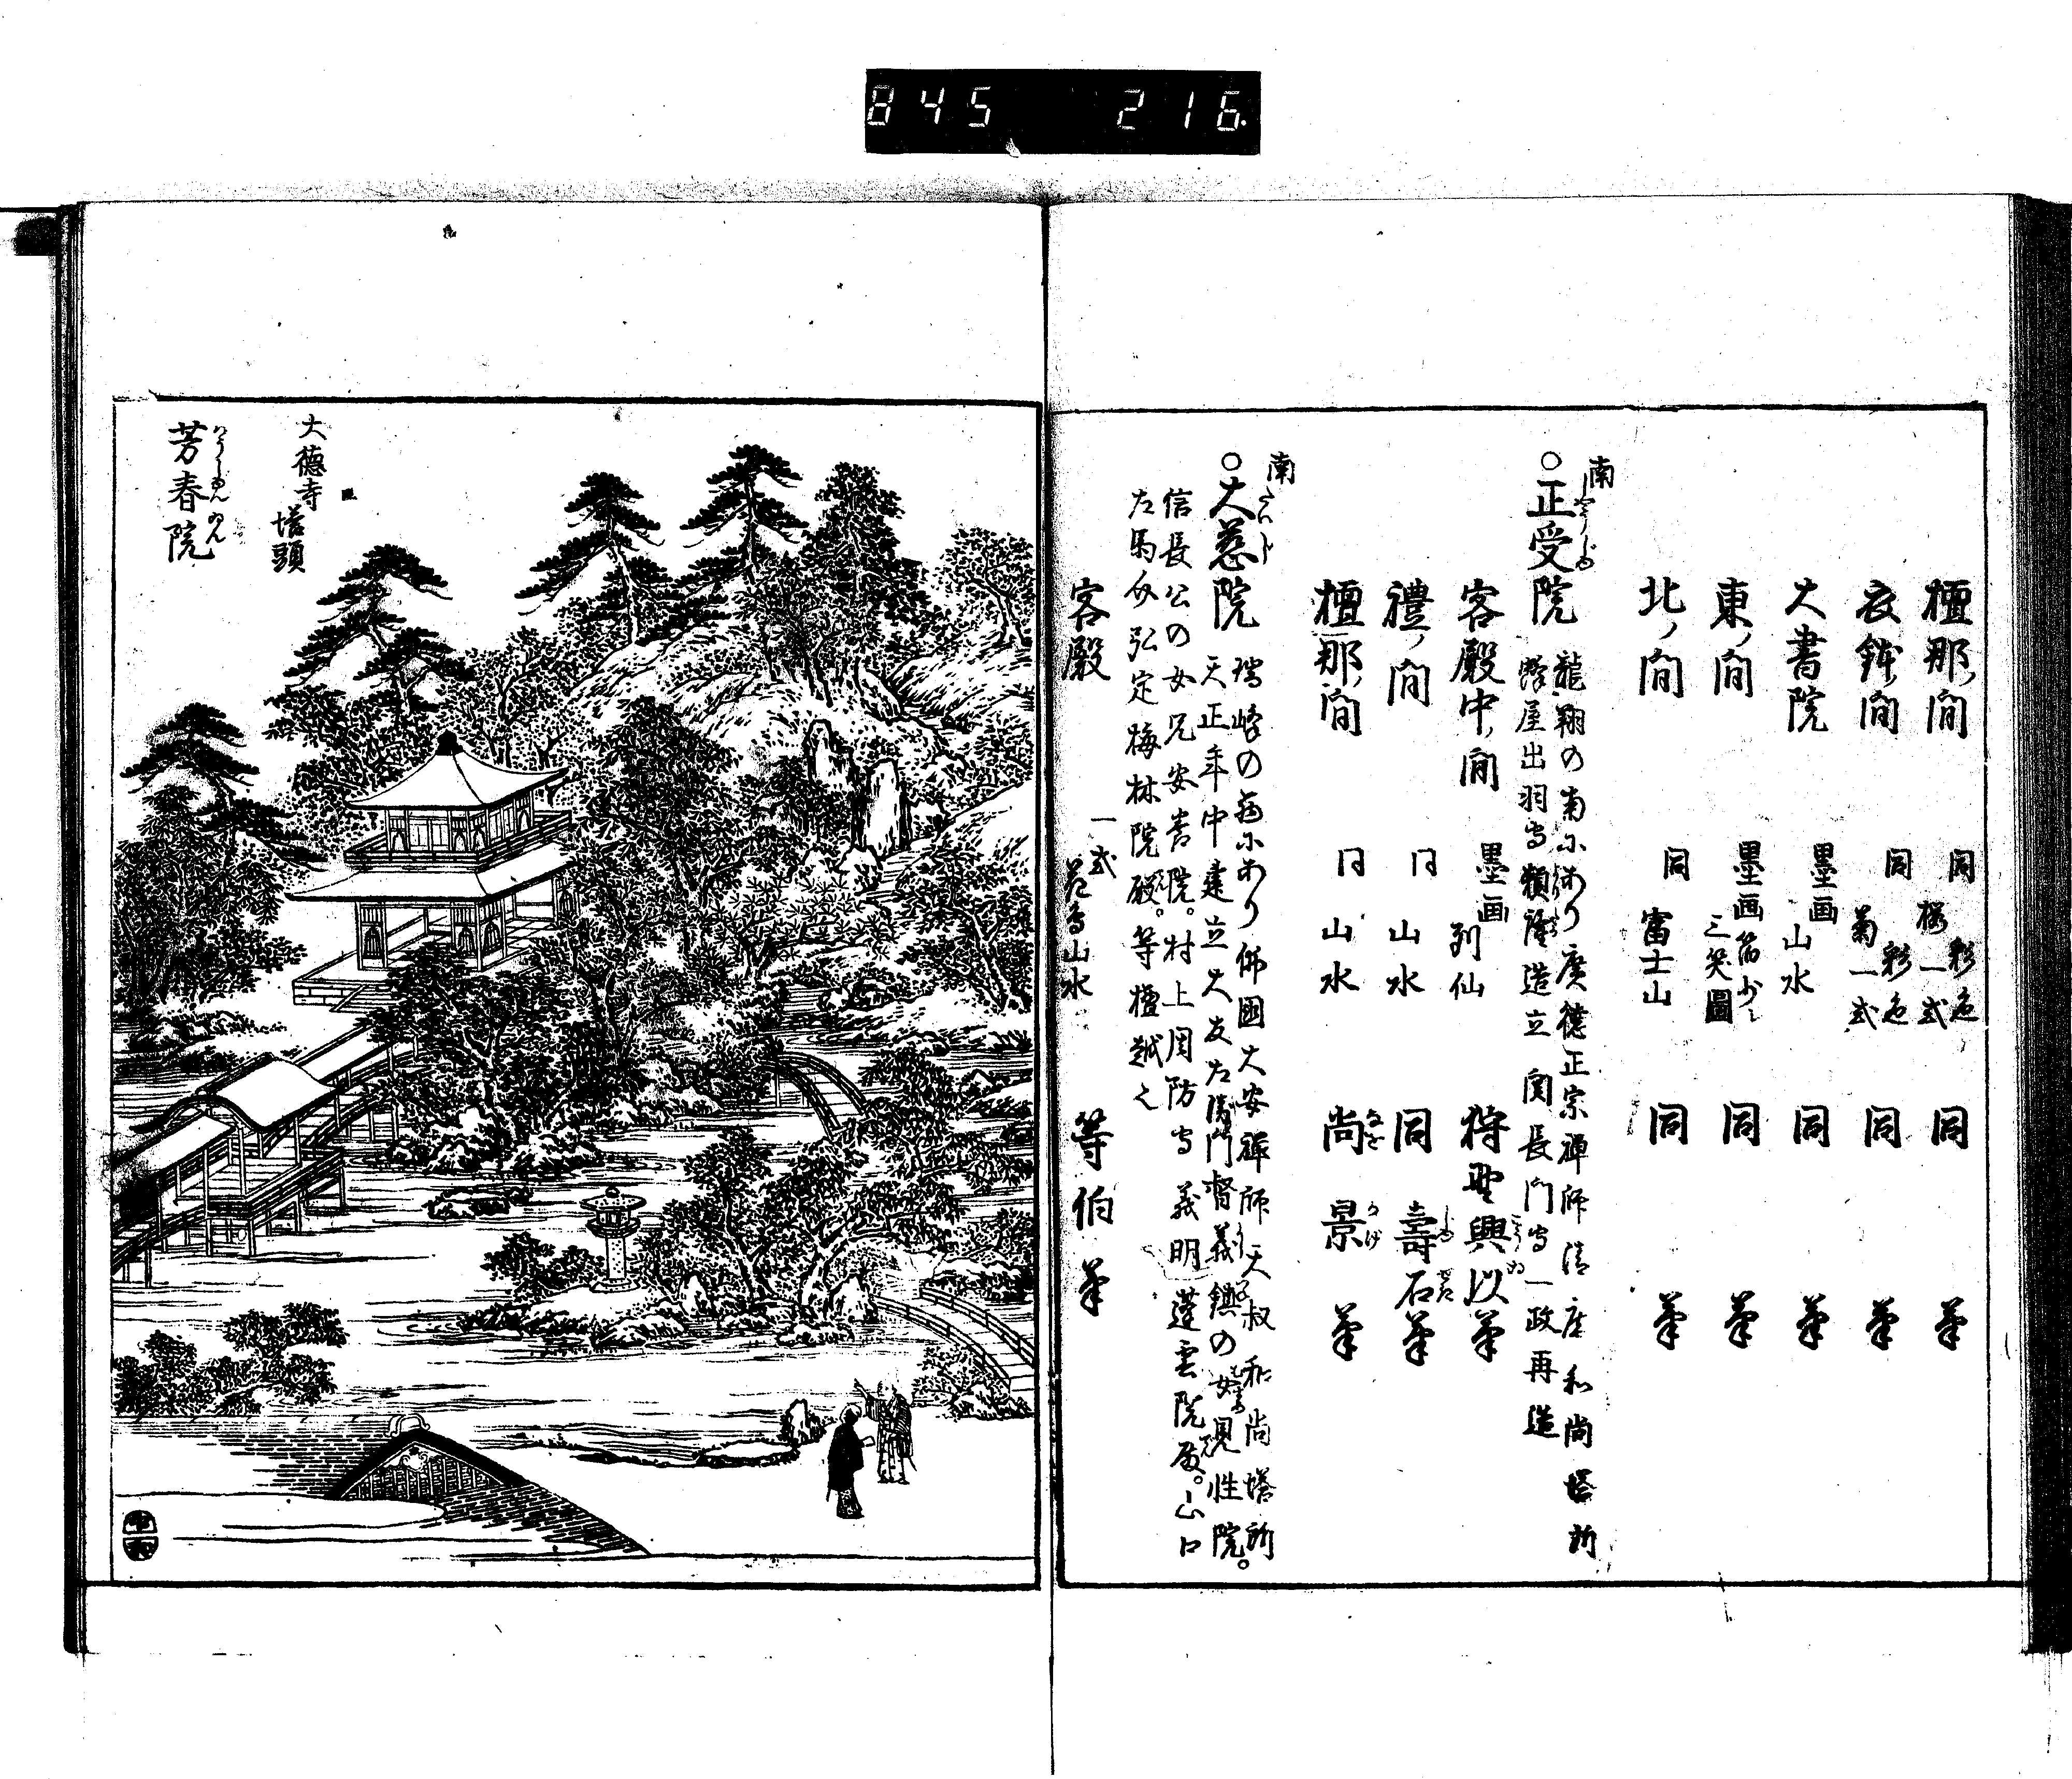 845 216
檀那ノ間 同 彩色 桜一式 同 筆
衣鉢ノ間 同 彩色 菊一式 同 筆
大書院 墨画 山水 同 筆
東ノ間 墨画 三笑圖 同 筆
北ノ間 同 富士山 同 筆
南
○正受院 龍翔の南にあり廣徳正宗禅師清庵和尚塔所
蜂屋出羽守頼隆造立 関長門守一政再造
客殿中ノ間 墨画 列仙 狩野興以筆
禮ノ間 同 山水 同 壽石筆
檀那ノ間 同 山水 尚景 筆
南
○大慈院 瑞峰の西にあり佛國大安禅師天叔和尚塔所
天正年中建立大友左衛門督義鎮の女見性院。
信長公の女兄安養院。村上周防守義明蓮雲院殿。山口
左馬介弘定梅林院殿。等檀越也
客殿 一式 花鳥山水 等伯筆
大徳寺
塔頭
芳春院